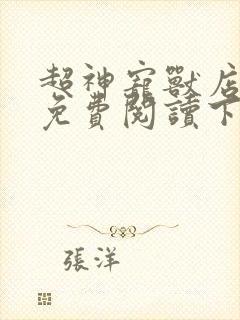 超神寵獸店
免費閱讀下
張洋